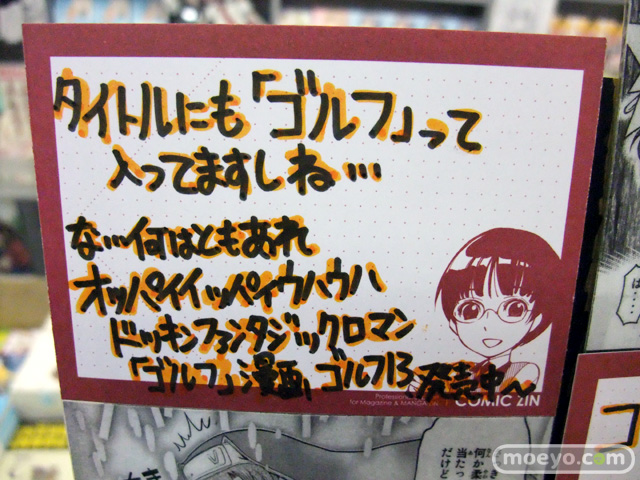 タイトルにも「ゴルフ」って
入ってますしね…
な…何はともあれ
オッパイイッパイウハウハ
ドッキンファンタジックロマン
「ゴルフ」漫画、ゴルフ13発売中〜
Professional
for Magazine & MANGA
COMIC ZIN
はい…
何か柔
当たっ
だけど
コ
moeyo.com